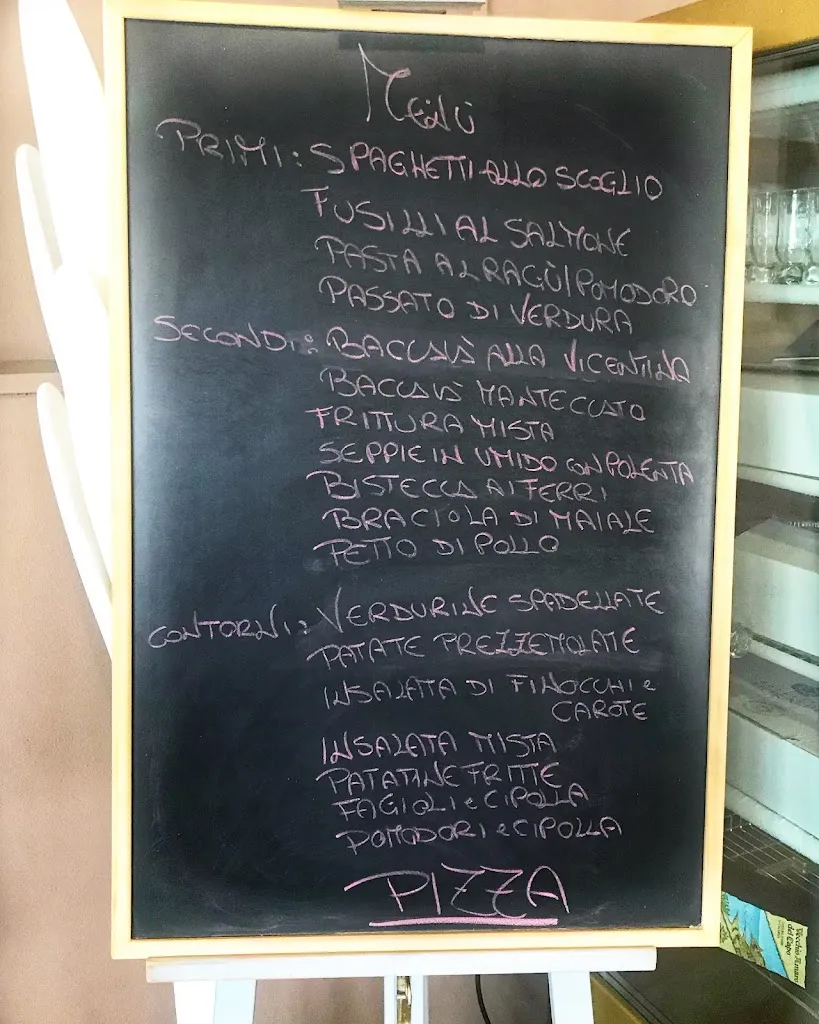 Menù
PRIMI: SPAGHETTI ALLO SCOGLIO
FUSILLI AL SALMONE
PASTA AL RAGÙ/POMODORO
PASSATO DI VERDURA
SECONDI: BACCALÀ ALLA VICENTINA
BACCALÀ MANTECCATO
FRITTURA MISTA
SEPPIE IN UMIDO CON POLENTA
BISTECCA AI FERRI
BRACIOLA DI MAIALE
PETTO DI POLLO
CONTORNI: VERDURINE SPADELLATE
PATATE PREZZEMOLATE
INSALATA DI FINOCCHI e
CAROTE
INSALATA MISTA
PATATINE FRITTE
FAGIOLI e CIPOLLA
POMODORI e CIPOLLA
PIZZA
Vecchio Amaro
del Capo